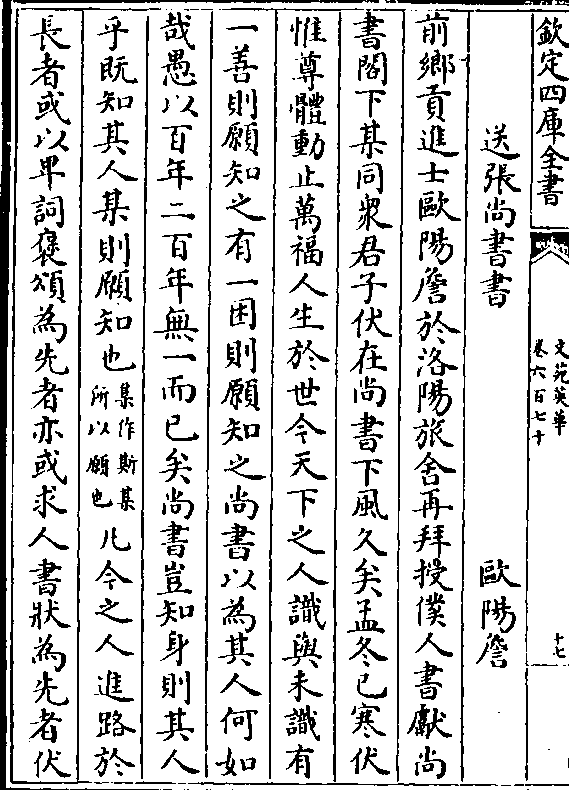 欽定四庫全書
文苑英華
卷六百七十
十七
送張尚書書 歐陽詹
前鄉貢進士歐陽詹於洛陽旅舍再拜授僕人書獻尚
書閣下某同衆君子伏在尚書下風久矣孟冬已寒伏
惟尊體動止萬福人生於世今天下之人識與未識有
一善則願知之有一困則願知之尚書以為其人何如
哉愚以百年二百年無一而已矣尚書豈知身則其人
乎既知其人某則願知也集作斯某所以願也凡今之人進路於
長者或以卑詞褒頌為先者亦或求人書狀為先者伏